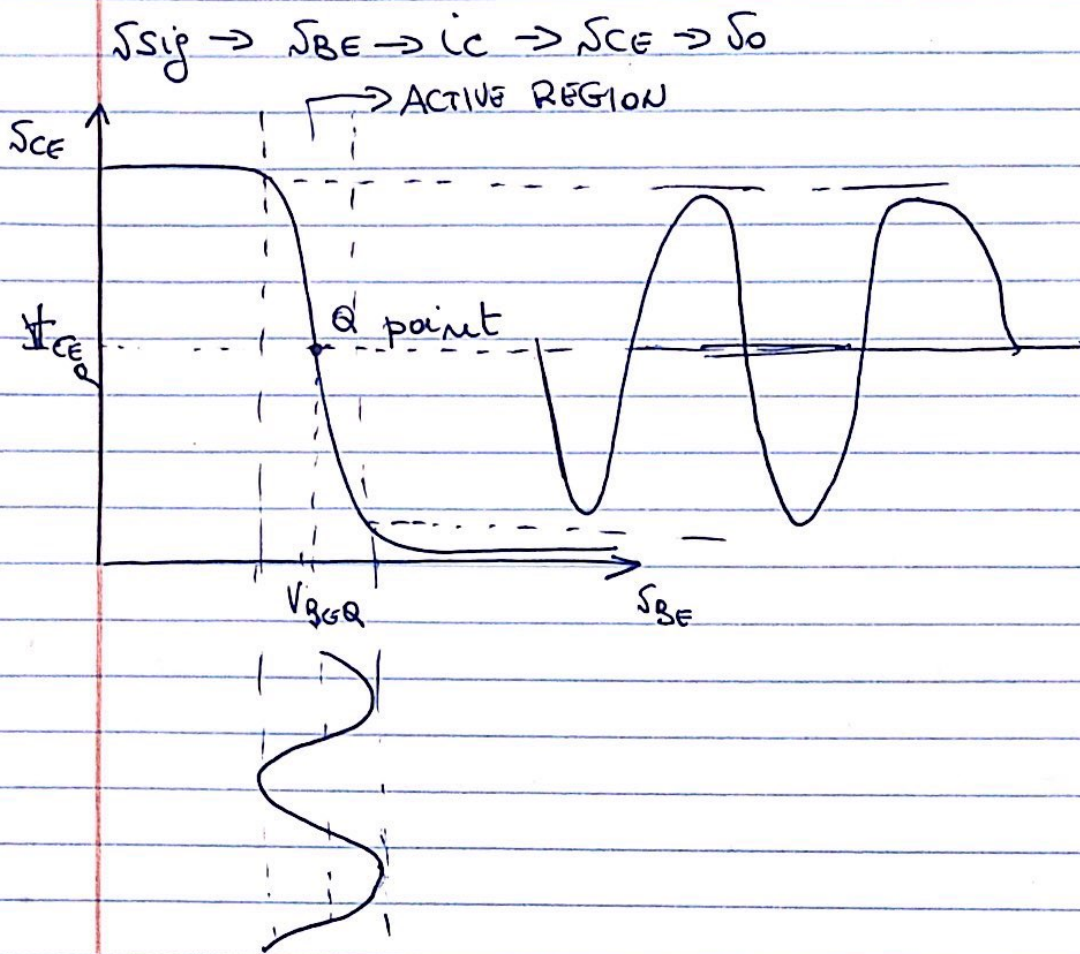 vsig → vBE → ic → vCE → vo
→ ACTIVE REGION
vCE
Q point
VCEQ
VBEQ
vBE